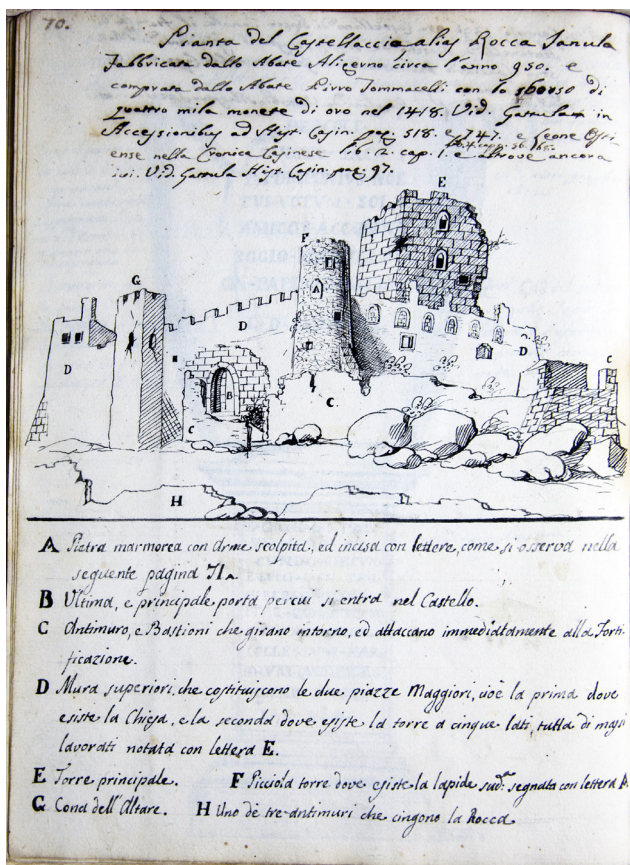 70.
Pianta del Castellaccio alias Rocca Janula
Fabbricata dallo Abate Aligerno circa l'anno 950. e
comprata dallo Abate Pirro Tommacelli con lo sborso di
quattro mila monete di oro nel 1418. Vid. Gattulam in
Accessionibus ad Hist. Casin. pag. 518. e 747. e Leone Osti-
ense nella Cronica Casinese lib. 2. cap. 1. e altrove ancora
ivi. Vid. Gattula Hist. Casin. pag. 97.
E
F
A
G
D
D
D
B
C
C
C
H
A Pietra marmorea con Arme scolpita, ed incisa con lettere, come si osserva nella
seguente pagina 71.
B Ultima, e principale porta per cui si entra nel Castello.
C Antimuro, e Bastioni che girano intorno, ed attaccano immediatamente alla Forti-
ficazione.
D Mura superiori, che costituiscono le due piazze Maggiori, cioè la prima dove
esiste la Chiesa, e la seconda dove esiste la torre a cinque lati, tutta di massi
lavorati notata con lettera E.
E Torre principale. F Picciola torre dove esiste la lapide sud.ª segnata con lettera A.
G Cona dell'Altare. H Uno de tre antimuri che cingono la Rocca